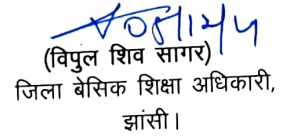 (विपुल शिव सागर)
जिला बेसिक शिक्षा अधिकारी,
झांसी।